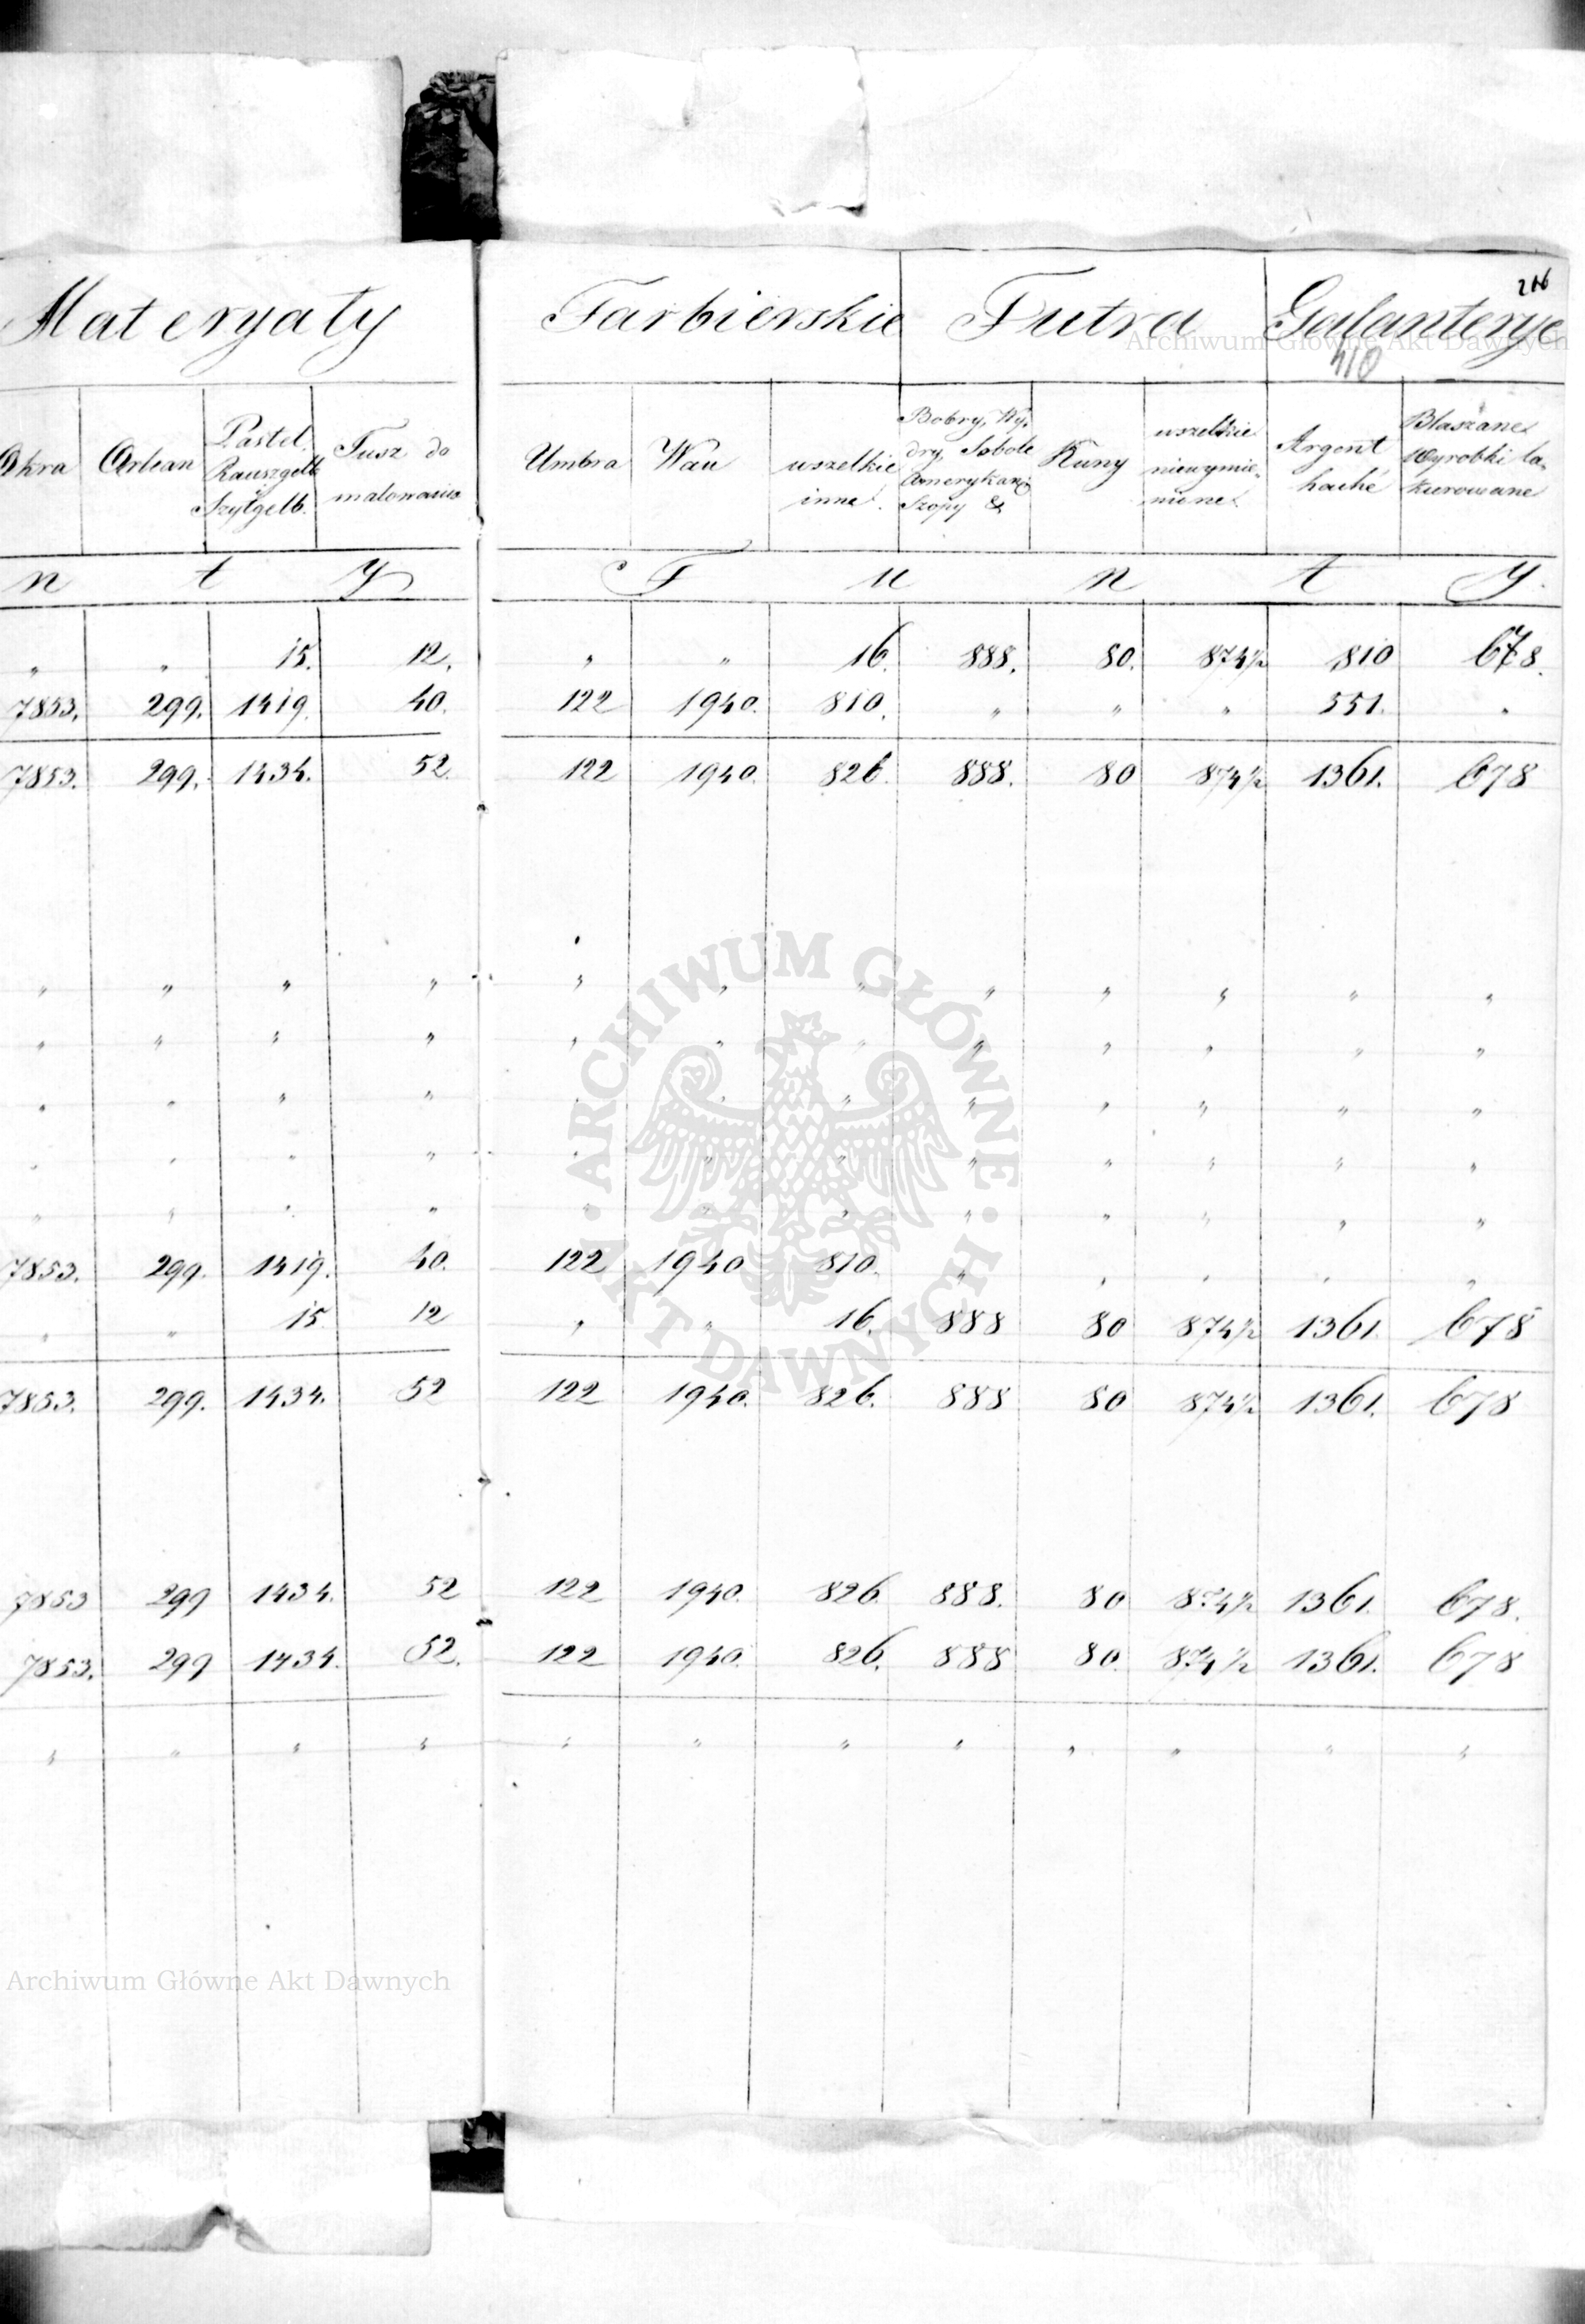 216
Materyały Farbierskie Futra Galanterye
410
Okra Orlean Pastel. Rauszgelb Szytgelb. Tusz do malowania Umbra Wau wszelkie inne. Bobry, Wydry, Sobole Amerykań. Szopy & Kuny wszelkie niewymienione. Argent haché Blaszane Wyrobki lakierowane
n t y F u n t y.
" " 15. 12. " " 16. 888. 80. 874½ 810 678.
7853. 299. 1419. 40. 122 1940. 810. " " " 551. "
7853. 299. 1434. 52. 122 1940. 826. 888. 80 874½ 1361. 678
" " " " " " " " " " " "
" " " " " " " " " " " "
" " " " " " " " " " " "
" " " " " " " " " " " "
" " " " " " " " " " " "
7853. 299. 1419. 40. 122 1940 810. " " " " "
" " 15. 12 " " 16. 888 80 874½ 1361. 678
7853. 299. 1434. 52 122 1940. 826. 888 80 874½ 1361. 678
7853 299 1434. 52 122 1940. 826. 888. 80 874½ 1361. 678.
7853. 299 1434. 52. 122 1940. 826. 888 80. 874½ 1361. 678
" " " " " " " " " " " "
Archiwum Główne Akt Dawnych
ARCHIWUM GŁÓWNE · AKT DAWNYCH ·
Archiwum Główne Akt Dawnych